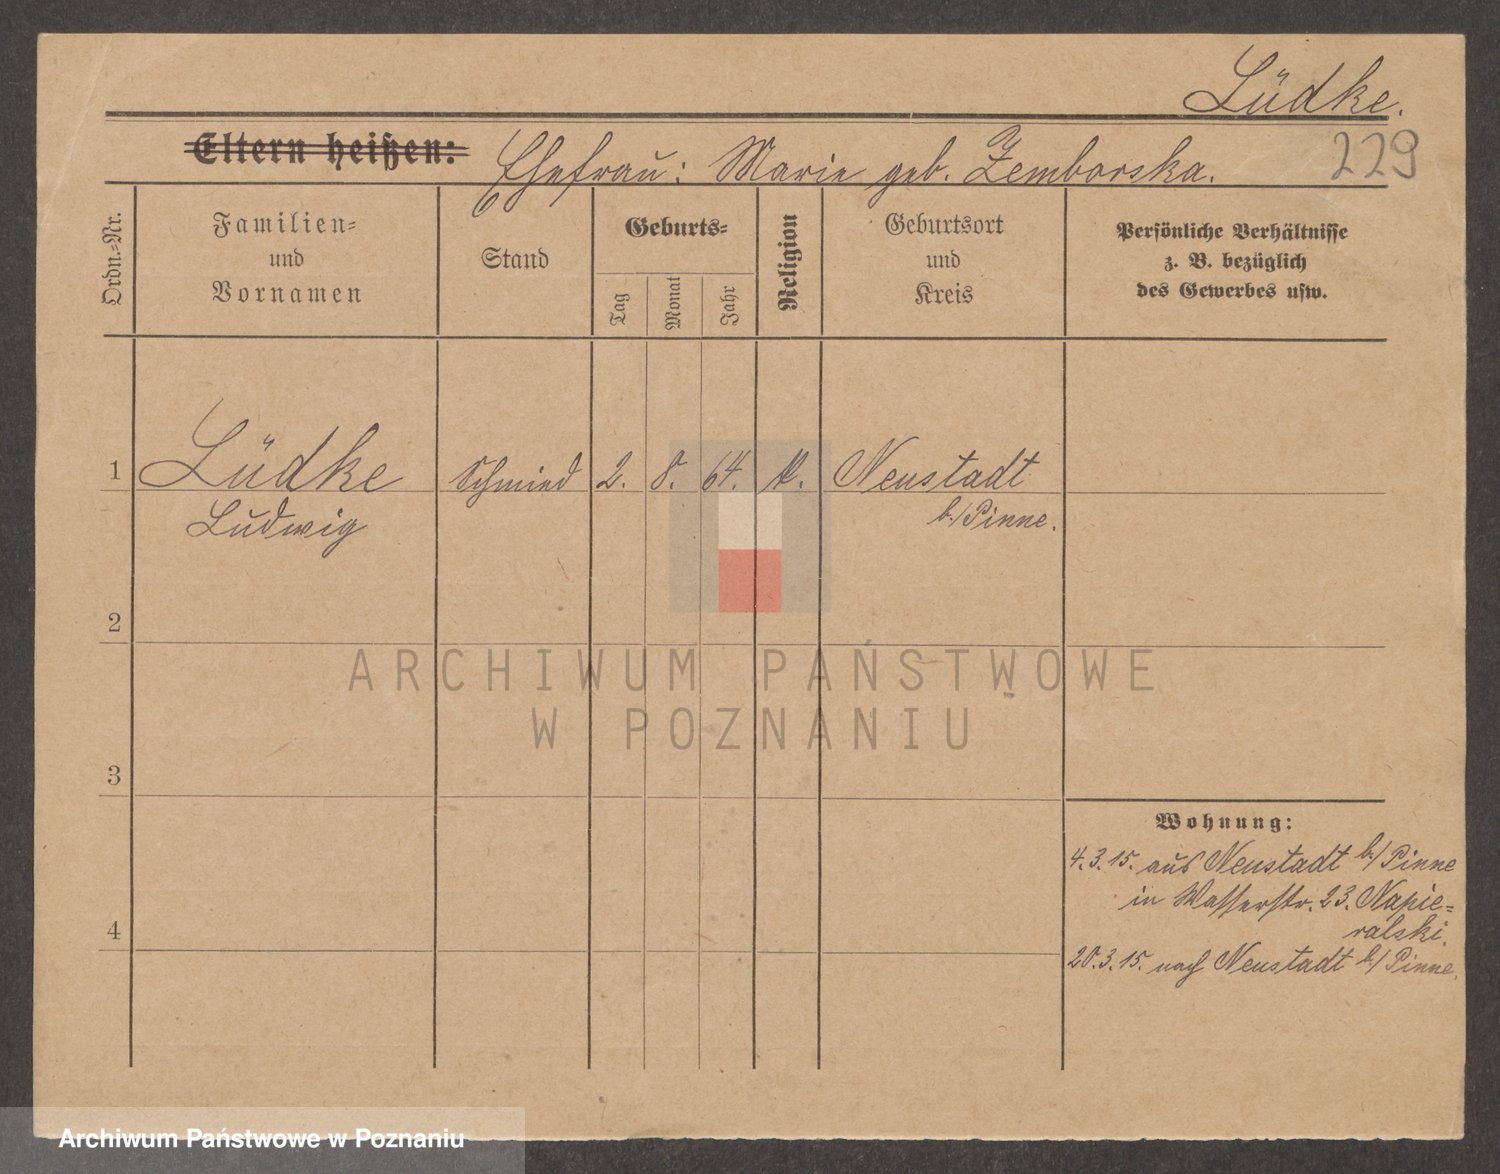 Lüdke.
229
Eltern heißen: Ehefrau: Marie geb. Zemborska.
Ordn.=Nr.
Familien=
und
Vornamen
Stand
Geburts=
Tag
Monat
Jahr
Religion
Geburtsort
und
Kreis
Persönliche Verhältnisse
z. B. bezüglich
des Gewerbes usw.
1 Lüdke Schmied 2. 8. 64. k. Neustadt
Ludwig b./Pinne.
2
ARCHIWUM PAŃSTWOWE
W POZNANIU
3
Wohnung:
4.3.15. aus Neustadt b/Pinne
in Wasserstr. 23. Napie=
ralski.
4
20.3.15. nach Neustadt b/Pinne.
Archiwum Państwowe w Poznaniu